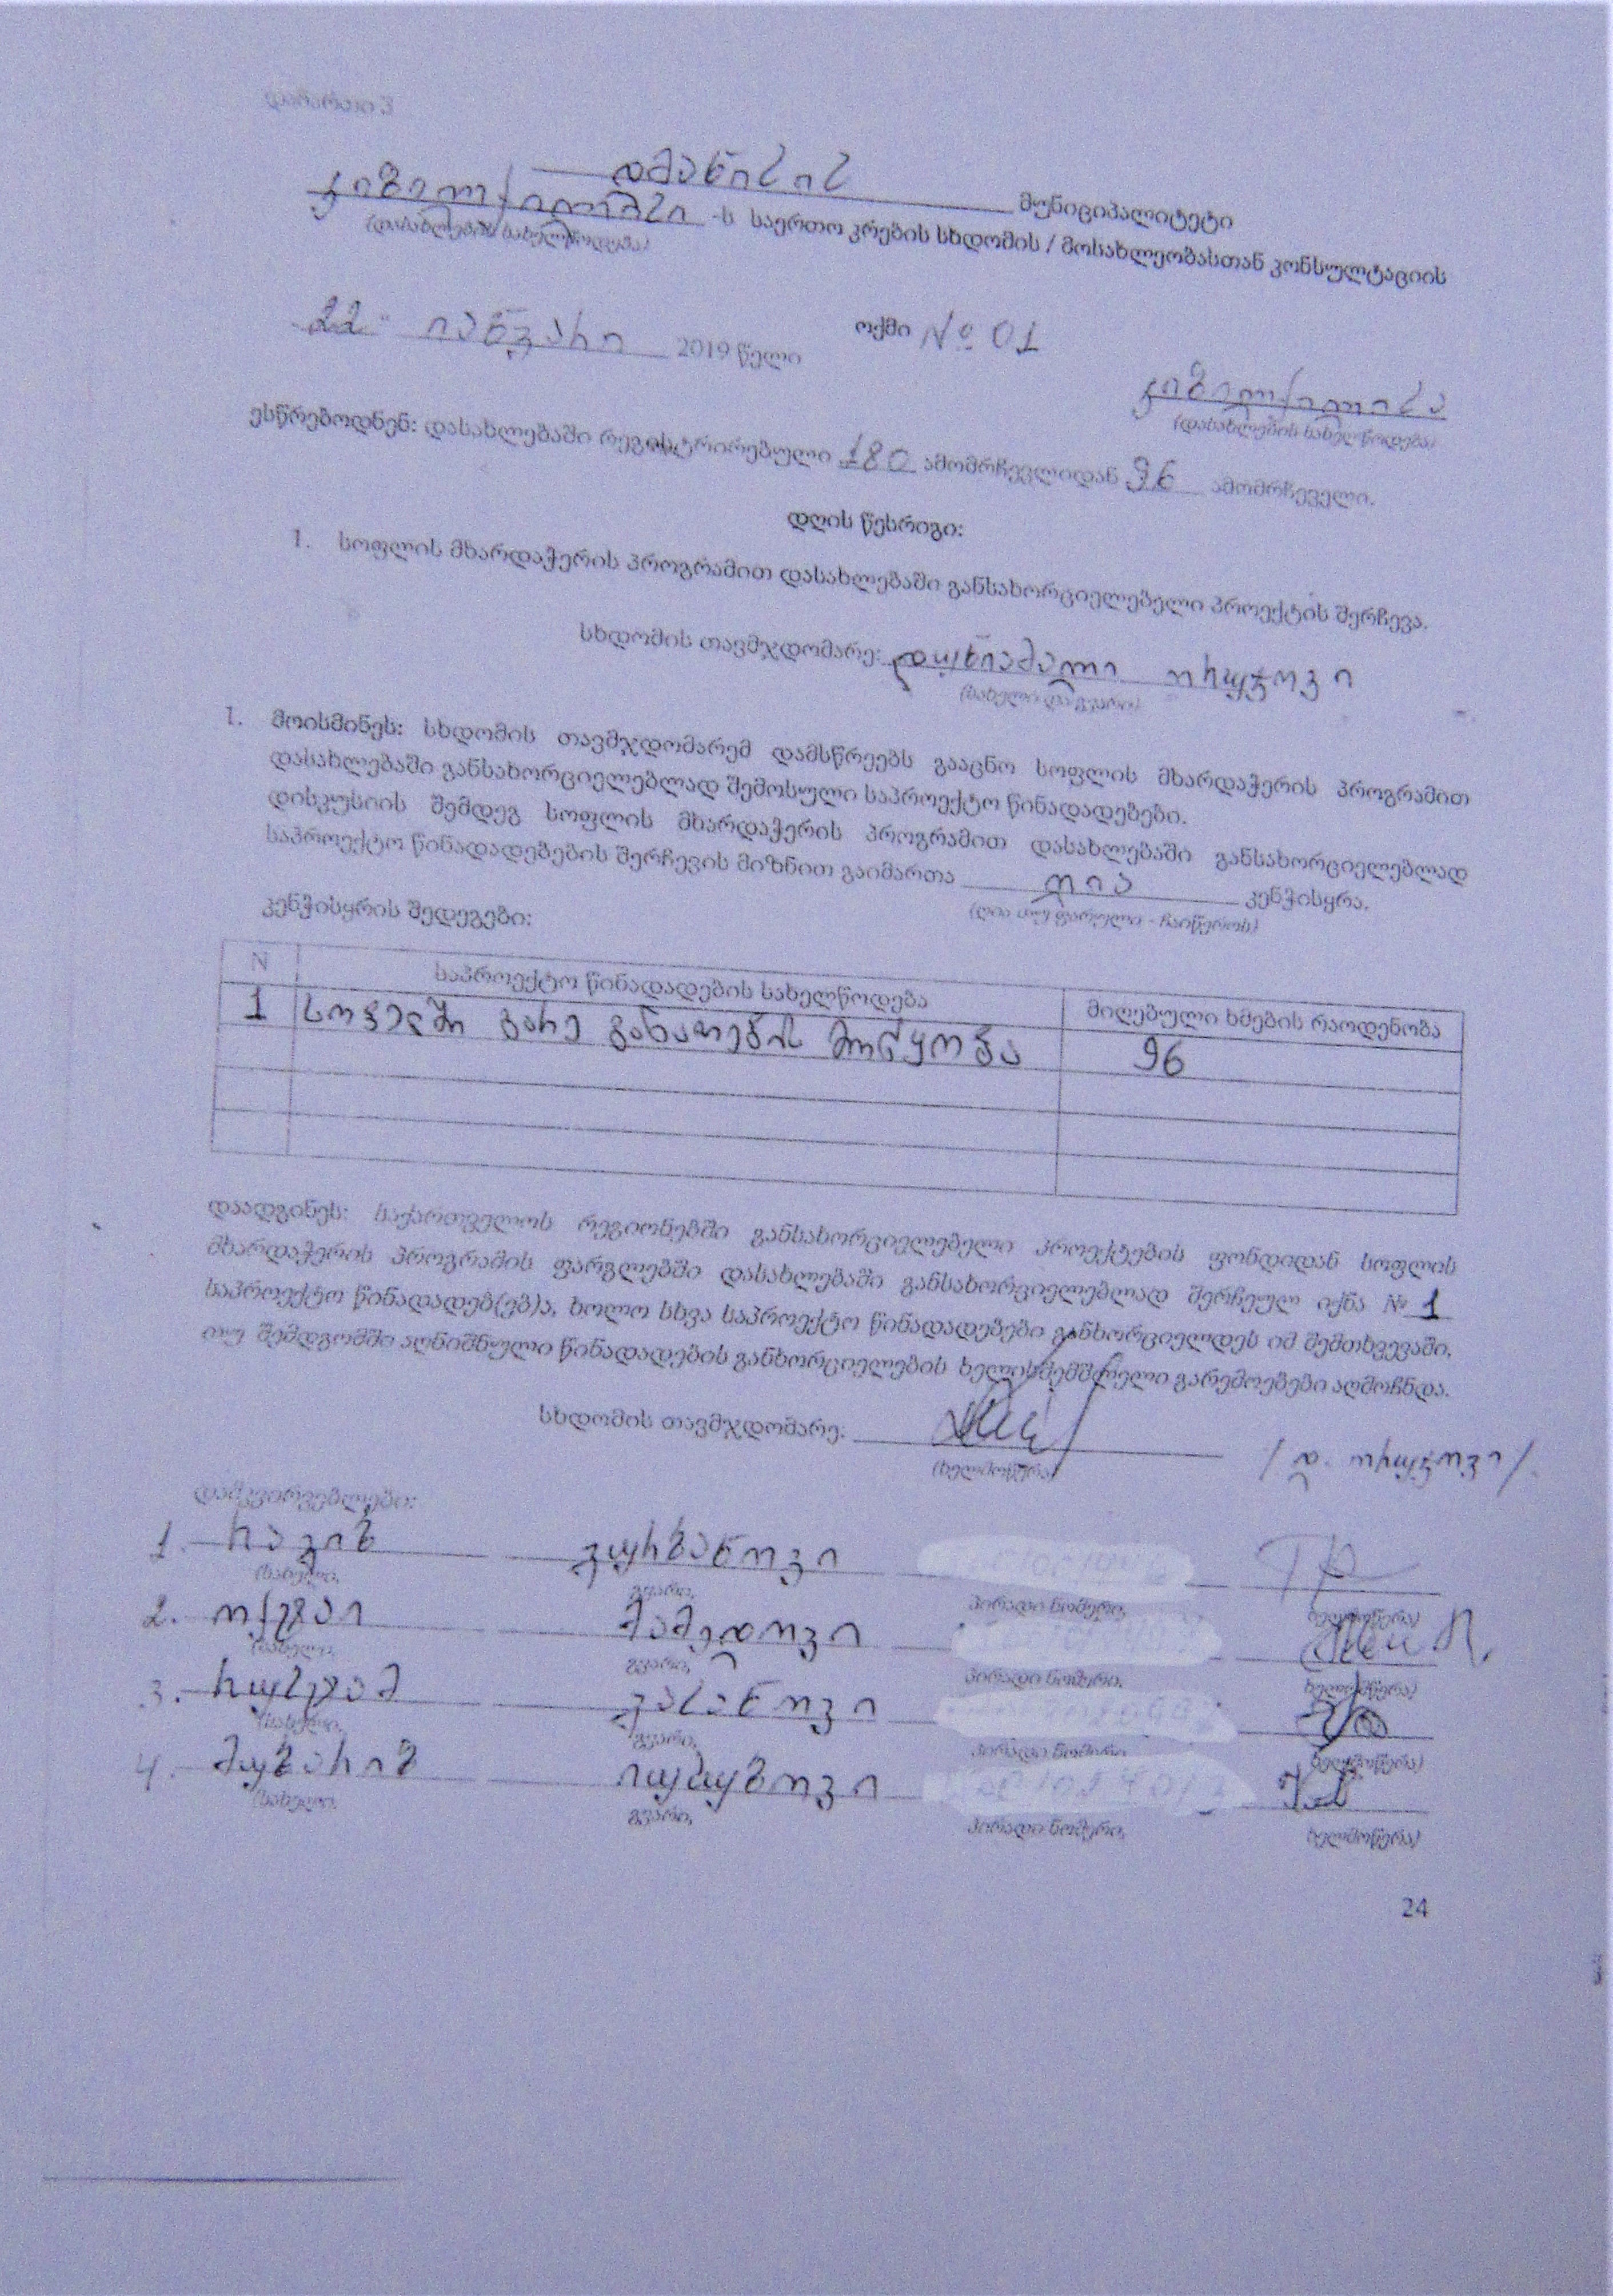 დანართი 3
დმანისის მუნიციპალიტეტი
კიზილქილისი -ს საერთო კრების სხდომის / მოსახლეობასთან კონსულტაციის
(დასახლების სახელწოდება)
ოქმი № 01
22 " იანვარი 2019 წელი
კიზილქილისა
(დასახლების სახელწოდება)
ესწრებოდნენ: დასახლებაში რეგისტრირებული 180 ამომრჩევლიდან 96 ამომრჩეველი.
დღის წესრიგი:
1. სოფლის მხარდაჭერის პროგრამით დასახლებაში განსახორციელებელი პროექტის შერჩევა.
სხდომის თავმჯდომარე: დუნიამალი ორუჯოვი
(სახელი და გვარი)
1. მოისმინეს: სხდომის თავმჯდომარემ დამსწრეებს გააცნო სოფლის მხარდაჭერის პროგრამით
დასახლებაში განსახორციელებლად შემოსული საპროექტო წინადადებები.
დისკუსიის შემდეგ სოფლის მხარდაჭერის პროგრამით დასახლებაში განსახორციელებლად
საპროექტო წინადადებების შერჩევის მიზნით გაიმართა ღია კენჭისყრა.
(ღია თუ ფარული - ჩაიწეროს)
კენჭისყრის შედეგები:
N საპროექტო წინადადების სახელწოდება მიღებული ხმების რაოდენობა
1 სოფელში გარე განათების მოწყობა 96
დაადგინეს: საქართველოს რეგიონებში განსახორციელებელი პროექტების ფონდიდან სოფლის
მხარდაჭერის პროგრამის ფარგლებში დასახლებაში განსახორციელებლად შერჩეულ იქნა № 1
საპროექტო წინადადებ(ებ)ა, ხოლო სხვა საპროექტო წინადადებები განხორციელდეს იმ შემთხვევაში,
თუ შემდგომში აღნიშნული წინადადების განხორციელების ხელისშემშლელი გარემოებები აღმოჩნდა.
სხდომის თავმჯდომარე: / დ. ორუჯოვი /
(ხელმოწერა)
დამკვირვებლები:
1. რაგიბ გურბანოვი
(სახელი, გვარი, პირადი ნომერი, ხელმოწერა)
2. ოქტაი მამედოვი
(სახელი, გვარი, პირადი ნომერი, ხელმოწერა)
3. რუსტამ გასანოვი
(სახელი, გვარი, პირადი ნომერი, ხელმოწერა)
4. მუბარიზ იუსუბოვი
(სახელი, გვარი, პირადი ნომერი, ხელმოწერა)
24